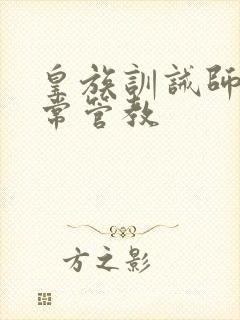 皇族訓誡師
常管教
方之影